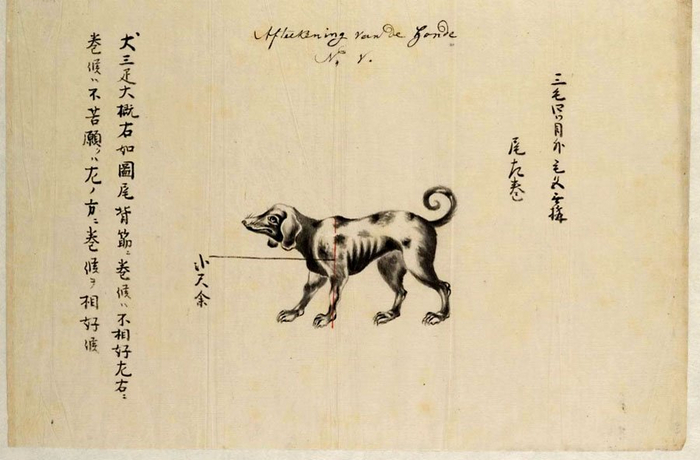 Afteekening van de Honde
N.º V.
三毛四ツ目外毛無構
尾左巻
尺余
犬三疋大概右如圖尾背筋ニ巻候ハ不相好左右ニ
巻候ハ不苦願クハ左ノ方ニ巻候ヲ相好候